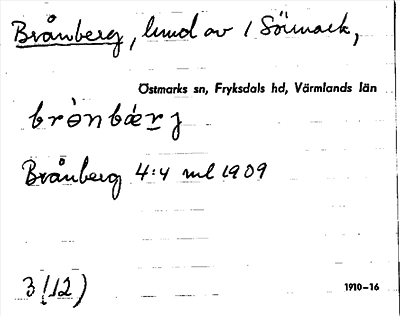 Brånberg, lund av / Sörmark,
Östmarks sn, Fryksdals hd, Värmlands län
brònbǽrj
Brånberg 4:4 ml 1909
3(12)
1910–16